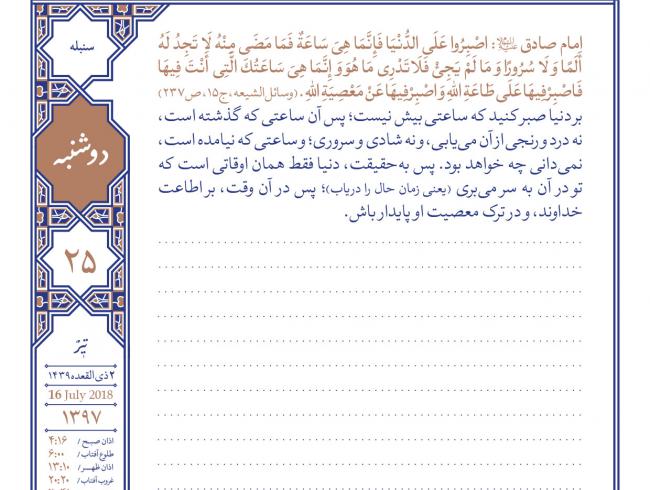 سنبله
دوشنبه
۲۵
تیر
۲ ذی‌القعده ۱۴۳۹
16 July 2018
۱۳۹۷
اذان صبح / ۴:۱۶
طلوع آفتاب / ۶:۰۰
اذان ظهر / ۱۳:۱۰
غروب آفتاب / ۲۰:۲۰
امام صادق ﷺ: اصْبِرُوا عَلَی الدُّنْیَا فَإِنَّمَا هِیَ سَاعَةٌ فَمَا مَضَی مِنْهُ لَا تَجِدُ لَهُ
أَلَمًا وَلَا سُرُورًا وَمَا لَمْ یَجِئْ فَلَا تَدْرِی مَا هُوَ وَ إِنَّمَا هِیَ سَاعَتُكَ الَّتِی أَنْتَ فِیهَا
فَاصْبِرْ فِیهَا عَلَی طَاعَةِ اللهِ وَاصْبِرْ فِیهَا عَنْ مَعْصِیَةِ اللهِ. (وسائل‌الشیعه، ج۱۵، ص۲۳۷)
بر دنیا صبر کنید که ساعتی بیش نیست؛ پس آن ساعتی که گذشته است،
نه درد و رنجی از آن می‌یابی، و نه شادی و سروری؛ و ساعتی که نیامده است،
نمی‌دانی چه خواهد بود. پس به‌حقیقت، دنیا فقط همان اوقاتی است که
تو در آن به سر می‌بری (یعنی زمان حال را دریاب)؛ پس در آن وقت، بر اطاعت
خداوند، و در ترک معصیت او پایدار باش.